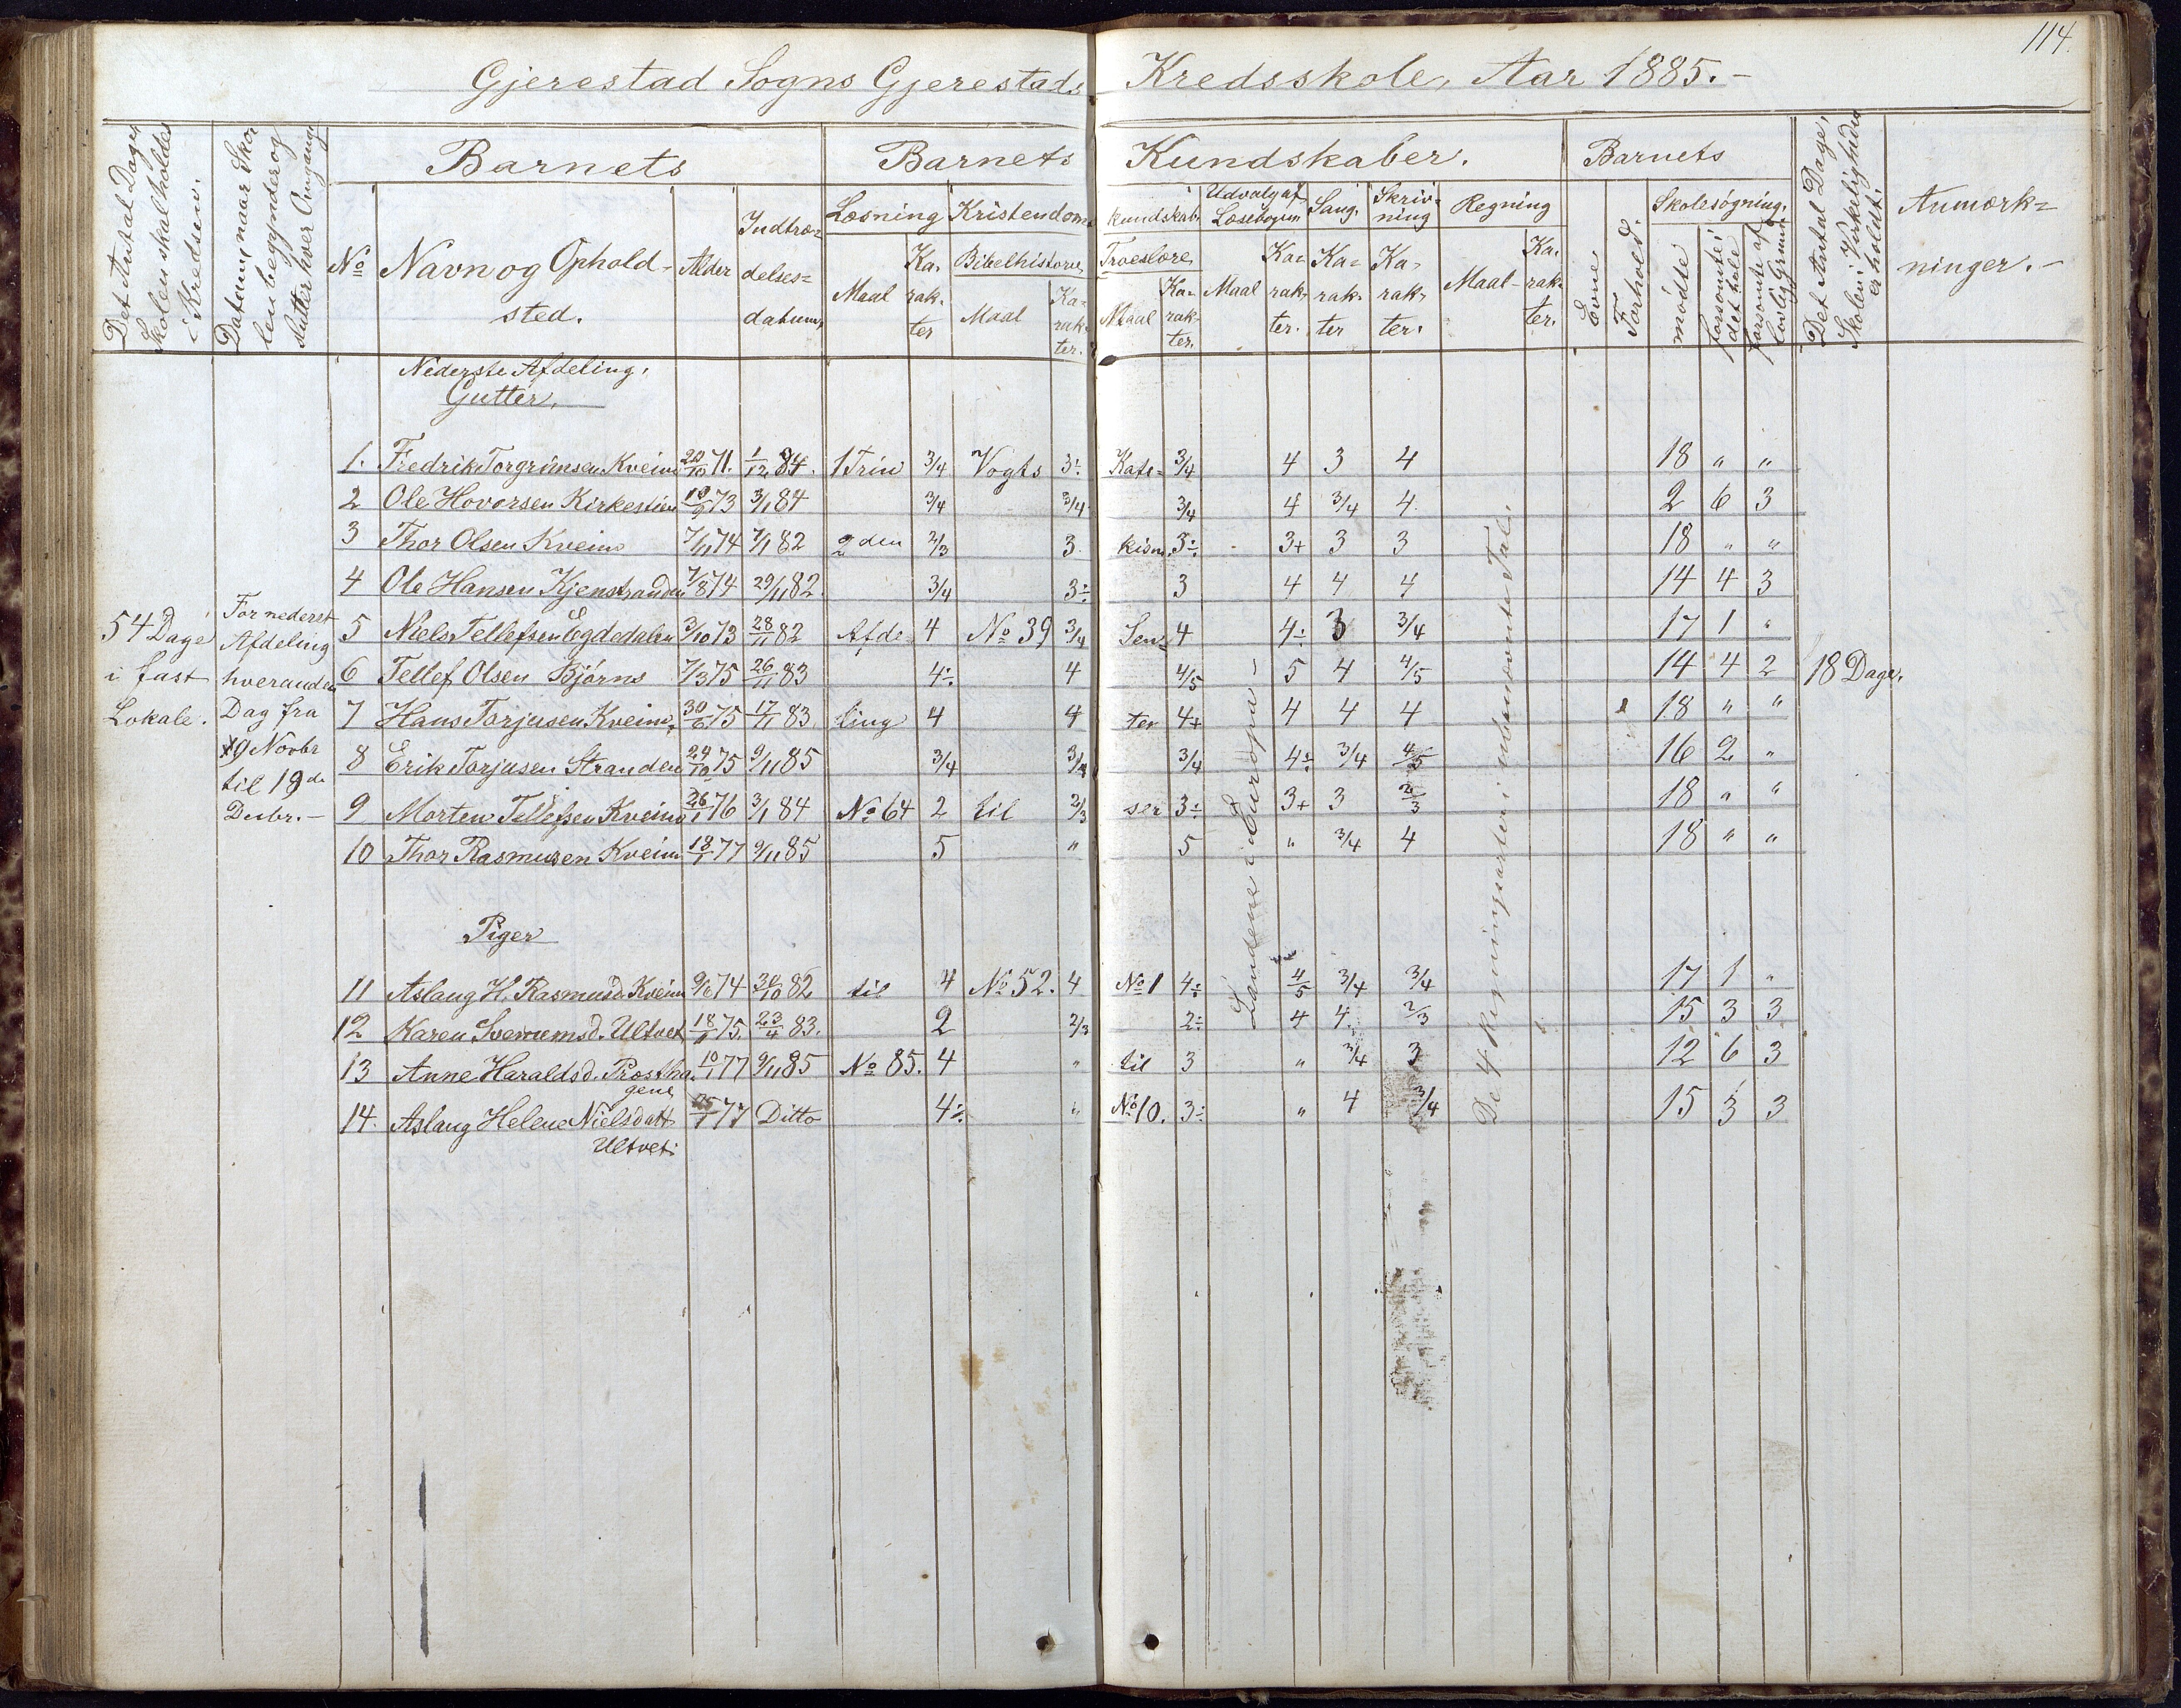 114.
Gjerestad Sogns Gjerestads Kredsskole, Aar 1885.-
Det Antal Dage, Skolen skal holdes i Kredsen.
Datum, naar Skolen begynder og slutter hver Omgang
Barnets
Barnets Kundskaber.
Barnets
Det Antal Dage, Skolen i Virkelighed er holdt.
Anmærkninger.-
No
Navn og Opholdsted.
Alder
Indtrædelsesdatum,
Læsning
Maal
Karakter
Kristendomskundskab.
Bibelhistorie,
Maal
Karakter.
Troeslære,
Maal
Karakter.
Udvalg af Læsebogen
Maal
Karakter.
Sang.
Karakter
Skrivning
Karakter.
Regning
Maal-
Karakter.
Evne
Forhold.
Skolesøgning.
mødte
forsømte i det hele
forsømte af lovlig Grund
54 Dage
i fast
Lokale.
For nederst
Afdeling
hveranden
Dag fra
9 Novbr
til 19de
Decbr.-
Nederste Afdeling,
Gutter,
1. Fredrik Torgrimsen Kveim 20/10 71. 1/12 84. 1 Trin 3/4 Vogts 3÷ Kate= 3/4 4 3 4 18 " "
2 Ole Hovorsen Kirkestien 19/9 73 3/1 84 3/4 3/4 3/4 4 3/4 4. 2 6 3
3 Thor Olsen Kveim 7/11 74 7/1 82 2den 2/3 3. kism. 3÷ 3+ 3 3 18 " "
4 Ole Hansen Kjenstranden 7/8 74 29/11 82. 3/4 3÷ 3 4 4 4 14 4 3
5 Niels Tellefsen Egdedalen 3/10 73 28/11 82 Afde 4 No 39 3/4 Sen= 4 4÷ 3 3/4 17 1 "
6 Tellef Olsen Bjørns 7/3 75 26/11 83 4÷ 4 4/5 5 4 4/5 14 4 2 18 Dage.
7 Hans Torjusen Kveim, 30/6 75 17/11 83 ling 4 4 ter 4+ 4 4 4 18 " "
8 Erik Torjusen Stranden 24/10 75 9/11 85 3/4 3/4 3/4 4÷ 3/4 4/5 16 2 "
9 Morten Tellefsen Kveim 26/1 76 3/1 84 No 64 2 til 2/3 ser 3÷ 3+ 3 2/3 18 " "
10 Thor Rasmusen Kveim 18/1 77 9/11 85 5 " 5 " 3/4 4 18 " "
Landene i Europa-
De 4 Regningsarter i ubenævnte Tal.
Piger
11 Aslaug H. Rasmusd. Kveim 9/6 74 30/10 82 til 4 No 52. 4 No 1 4÷ 4/5 3/4 3/4 17 1 "
12 Karen 75. 23/4 83. 2 2/3 2÷ 4 4. 2/3 15 3 3
13 Anne Haraldsd. Prosthagene 10/1 77 9/11 85 No 85. 4 " til 3 " 3/4 3 12 6 3
14. Aslaug Helene Nielsdatt 77 Ditto 4÷ " No 10. 3÷ " 4 3/4 15 3 3
Ultvet.